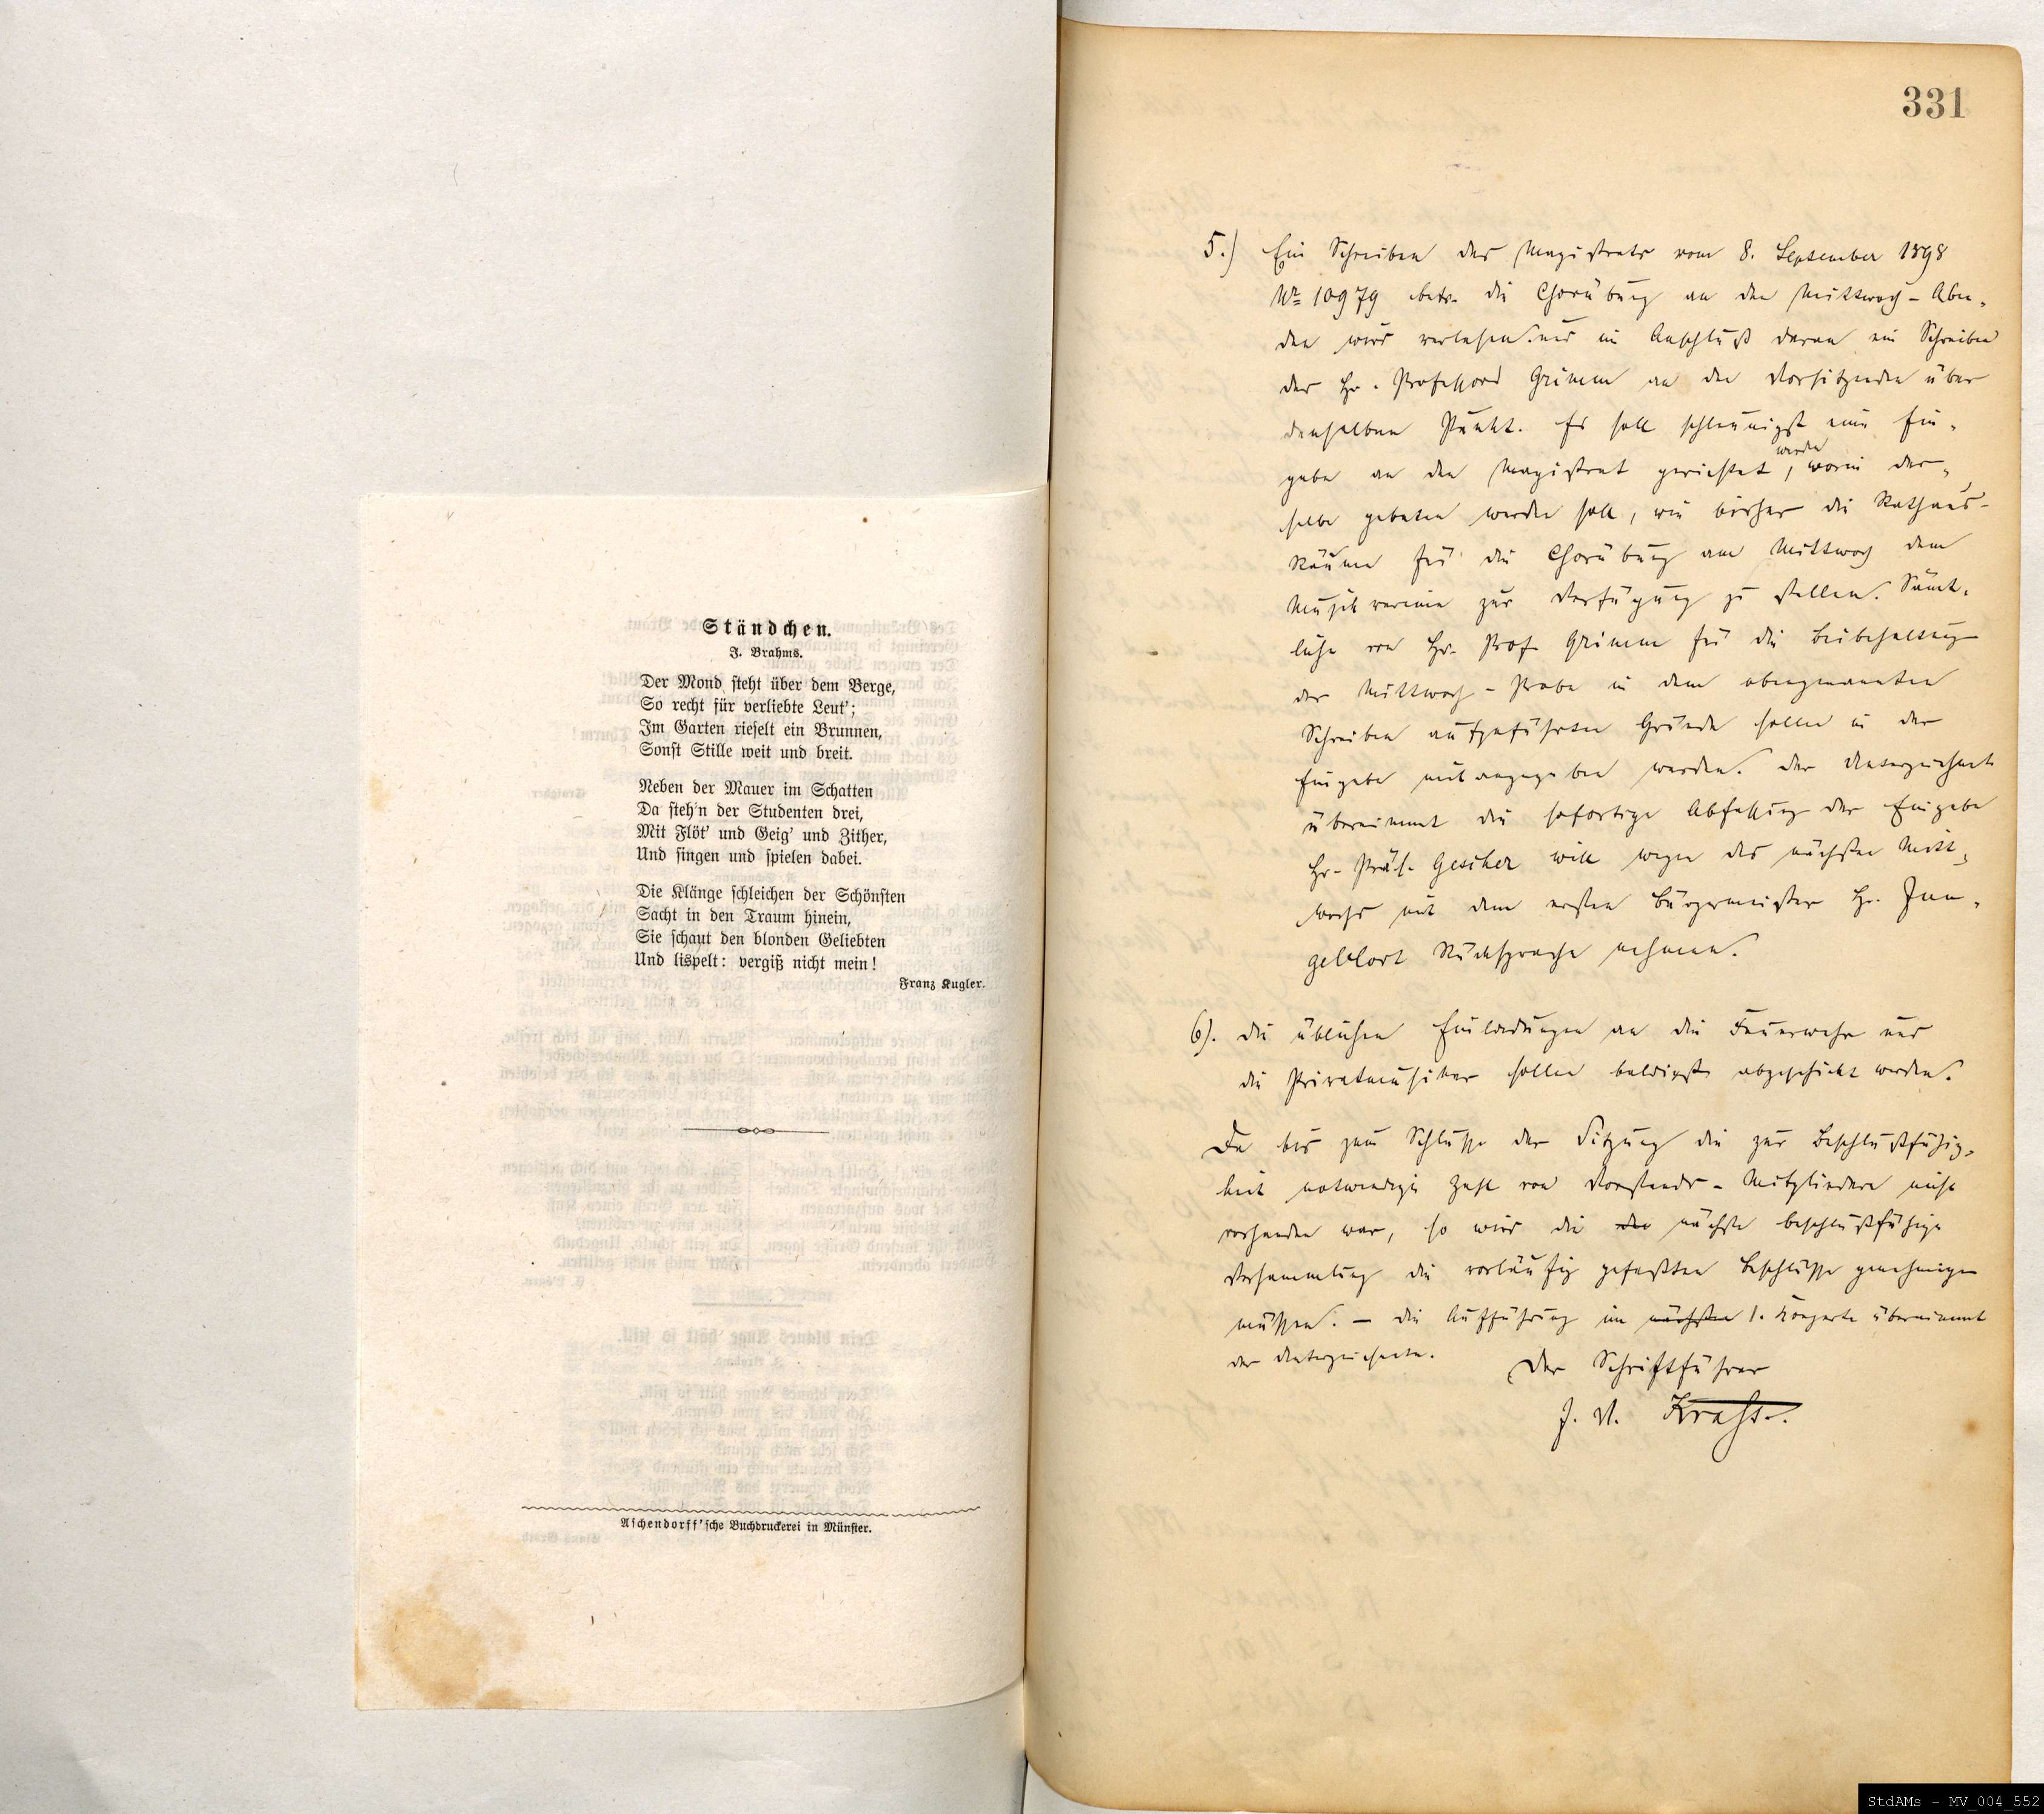 Ständchen.
J. Brahms.
Der Mond steht über dem Berge,
So recht für verliebte Leut';
Im Garten rieselt ein Brunnen,
Sonst Stille weit und breit.
Neben der Mauer im Schatten
Da steh'n der Studenten drei,
Mit Flöt' und Geig' und Zither,
Und singen und spielen dabei.
Die Klänge schleichen der Schönsten
Sacht in den Traum hinein,
Sie schaut den blonden Geliebten
Und lispelt: vergiß nicht mein!
Franz Kugler.
Aschendorff'sche Buchdruckerei in Münster.
331
5.) Ein Schreiben des Magistrats vom 8. September 1898
Nr 10979 betr. die Chorübung an den Mittwoch-Aben-
den wird verlesen und im Anschluß daran ein Schreiben
des Hr. Professors Grimm an den Vorsitzenden über
denselben Punkt. Es soll schleunigst eine Ein-
gabe an den Magistrat gerichtet werden, worin der-
selbe gebeten werden soll, wie bisher die Rathaus-
Räume für die Chorübung am Mittwoch dem
Musikvereine zur Verfügung zu stellen. Sämt-
liche von Hr. Prof. Grimm für die Beibehaltung
der Mittwoch-Probe in dem obengenannten
Schreiben aufgeführten Gründe sollen in der
Eingabe mit angegeben werden. Der Unterzeichnete
übernimmt die sofortige Abfassung der Eingabe
Hr. Präs. Gescher will wegen des nächsten Mitt-
wochs mit dem ersten Bürgermeister Hr. Jun-
geblodt Rücksprache nehmen.
6). Die üblichen Einladungen an die Feuerwehr und
die Privatmusiker sollen baldigst abgeschickt werden.
Da bis zum Schlusse der Sitzung die zur Beschlußfähig-
keit notwendige Zahl von Vorstands-Mitgliedern nicht
vorhanden war, so wird die nächste beschlußfähige
Versammlung die vorläufig gefaßten Beschlüsse genehmigen
müssen. - Die Aufführung im nächsten 1. Konzerte übernimmt
der Unterzeichnete.
Der Schriftführer
J. V. Krafs.
StdAMs - MV_004_552